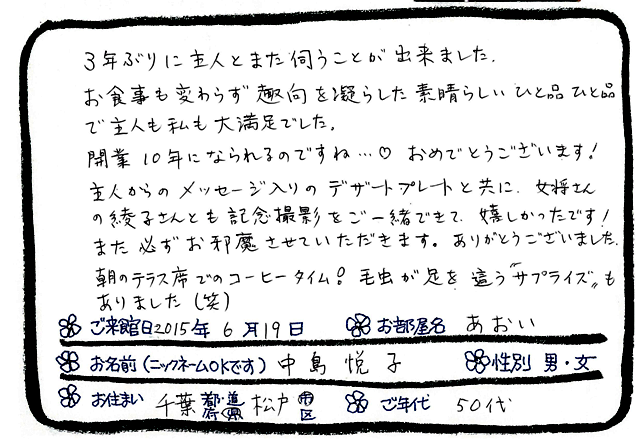 3年ぶりに主人とまた伺うことが出来ました.
お食事も変わらず趣向を凝らした素晴らしいひと品ひと品
で主人も私も大満足でした.
開業10年になられるのですね…♡ おめでとうございます!
主人からのメッセージ入りのデザートプレートと共に、女将さん
の綾子さんとも記念撮影をご一緒できて、嬉しかったです!
また必ずお邪魔させていただきます。ありがとうございました.
朝のテラス席でのコーヒータイム! 毛虫が足を這う"サプライズ"も
ありました(笑)
ご来館日2015年 6月19日 お部屋名 あおい
お名前(ニックネームOKです) 中島 悦子 性別 男・女
お住まい 千葉 都道府県 松戸 市区 ご年代 50代